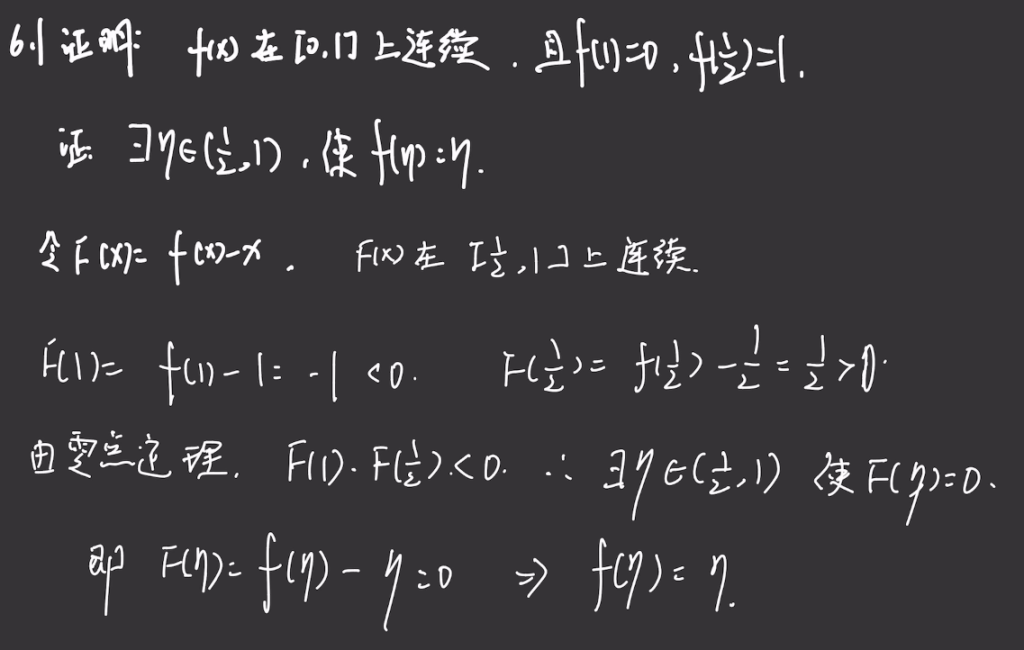 6.1 证明: f(x)在[0,1]上连续. 且f(1)=0, f(1/2)=1.
证 ∃η∈(1/2,1), 使 f(η)=η.
令F(x)= f(x)-x. F(x)在 [1/2,1]上连续.
F(1)= f(1)-1= -1 <0. F(1/2)= f(1/2)-1/2=1/2>0.
由零点定理. F(1)·F(1/2)<0. ∴ ∃η∈(1/2,1) 使F(η)=0.
即 F(η)= f(η)-η=0 ⇒ f(η)=η.